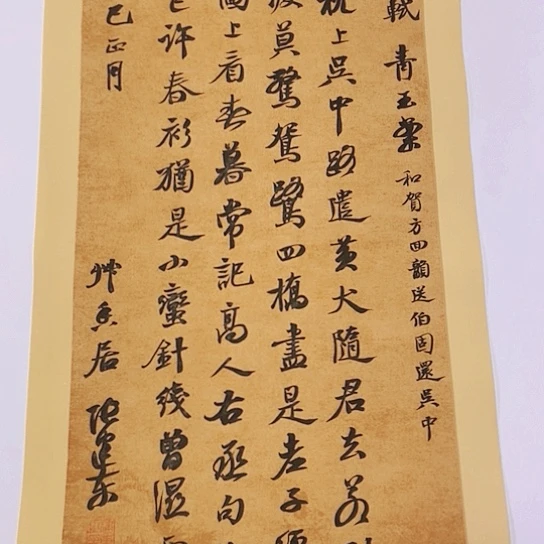 軾 青玉案 和賀方回韻送伯固還吳中
上吳中路遣黃犬隨君去若
莫驚鴛鷺四橋盡是老子
圖上看春暮常記高人右丞句
許春衫猶是小蠻針綫曾濕
巳正月
艸居